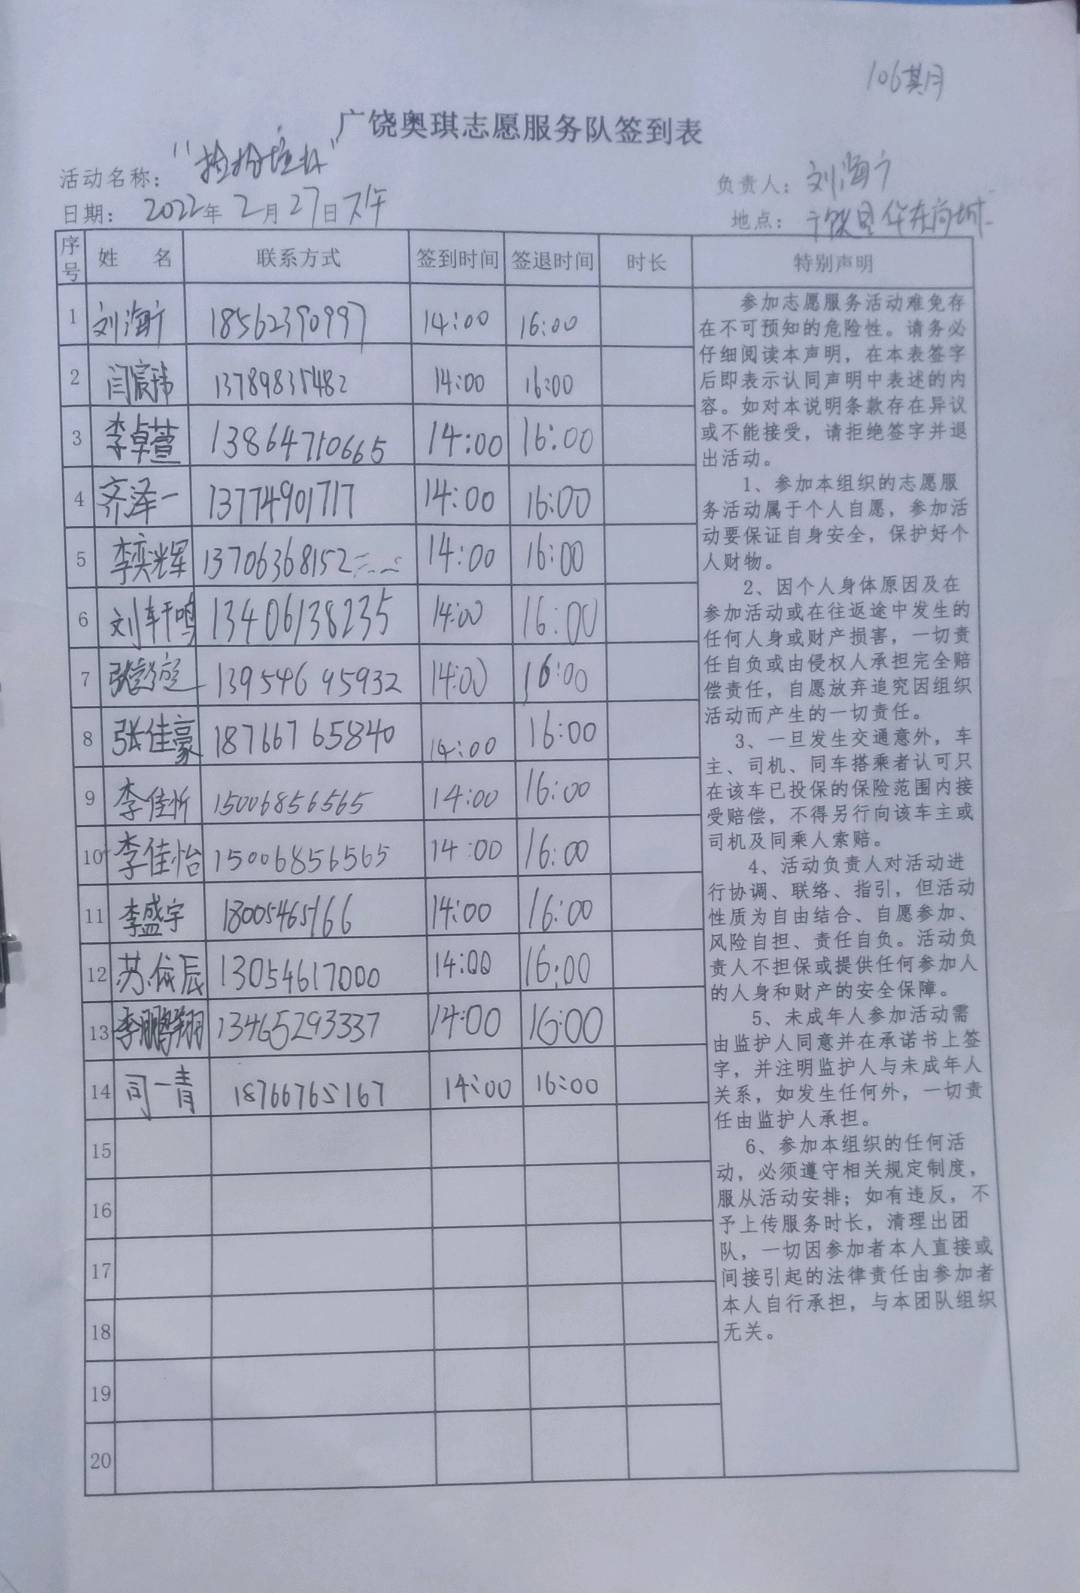 106期
广饶奥琪志愿服务队签到表
活动名称："捡拾垃圾"
负责人：刘海广
日期：2022年2月27日下午
地点：广饶县华东商城
序号 姓 名 联系方式 签到时间 签退时间 时长 特别声明
1 刘海广 18562390997 14:00 16:00
2 闫宸玮 13789835482 14:00 16:00
3 李卓萱 13864710665 14:00 16:00
4 齐泽一 13774901717 14:00 16:00
5 李奕光军 13706368152 14:00 16:00
6 刘轩鸣 13406138235 14:00 16:00
7 张 13954695932 14:00 16:00
8 张佳豪 18766765840 14:00 16:00
9 李佳忻 15006856565 14:00 16:00
10 李佳怡 15006856565 14:00 16:00
11 李盛宇 18005465166 14:00 16:00
12 苏俊辰 13054617000 14:00 16:00
13 李鹏翔 13465293337 14:00 16:00
14 司一青 18766765167 14:00 16:00
15
16
17
18
19
20
参加志愿服务活动难免存
在不可预知的危险性。请务必
仔细阅读本声明，在本表签字
后即表示认同声明中表述的内
容。如对本说明条款存在异议
或不能接受，请拒绝签字并退
出活动。
1、参加本组织的志愿服
务活动属于个人自愿，参加活
动要保证自身安全，保护好个
人财物。
2、因个人身体原因及在
参加活动或在往返途中发生的
任何人身或财产损害，一切责
任自负或由侵权人承担完全赔
偿责任，自愿放弃追究因组织
活动而产生的一切责任。
3、一旦发生交通意外，车
主、司机、同车搭乘者认可只
在该车已投保的保险范围内接
受赔偿，不得另行向该车主或
司机及同乘人索赔。
4、活动负责人对活动进
行协调、联络、指引，但活动
性质为自由结合、自愿参加、
风险自担、责任自负。活动负
责人不担保或提供任何参加人
的人身和财产的安全保障。
5、未成年人参加活动需
由监护人同意并在承诺书上签
字，并注明监护人与未成年人
关系，如发生任何外，一切责
任由监护人承担。
6、参加本组织的任何活
动，必须遵守相关规定制度，
服从活动安排；如有违反，不
予上传服务时长，清理出团
队，一切因参加者本人直接或
间接引起的法律责任由参加者
本人自行承担，与本团队组织
无关。